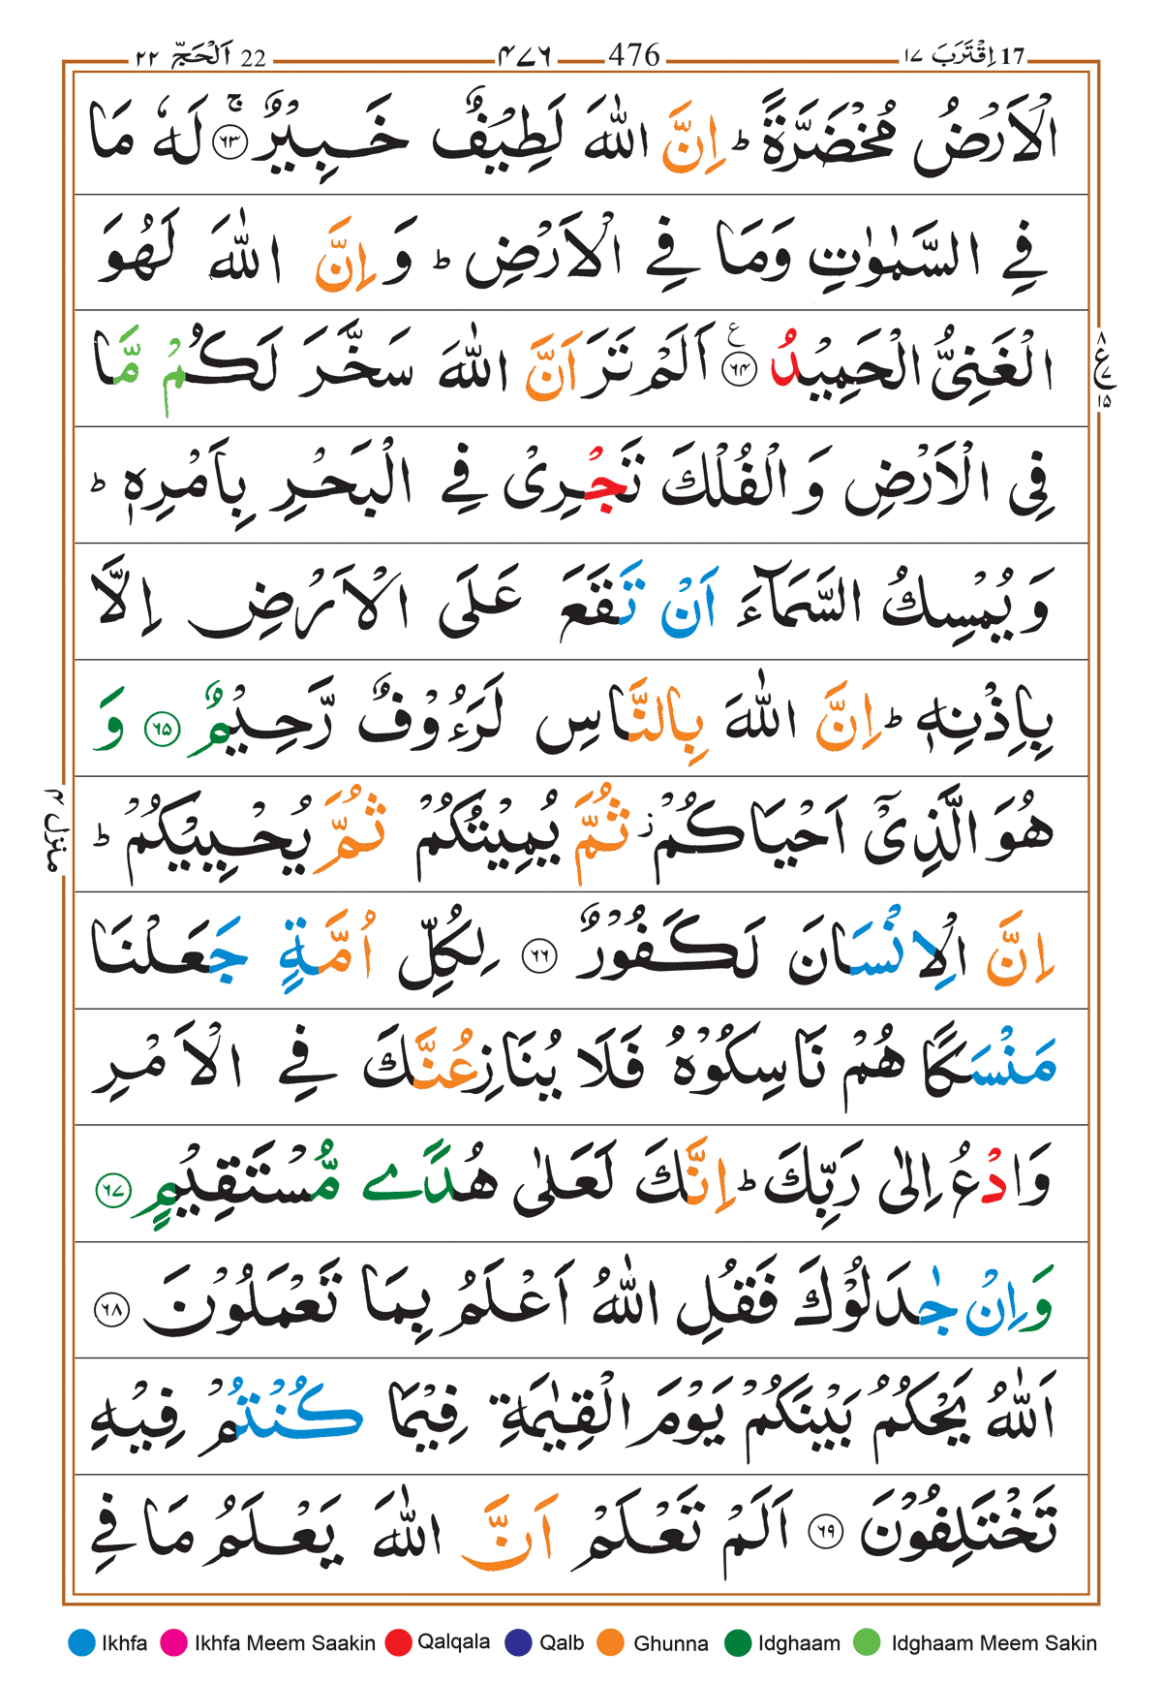 22 اَلْحَجّ ٢٢
476 ۴۷۶
17 اِقْتَرَبَ ١٧
الْاَرْضُ مُخْضَرَّةً ؕ اِنَّ اللّٰهَ لَطِيْفٌ خَبِيْرٌ ۚ‏﴿۶۳﴾ لَهٗ مَا
فِي السَّمٰوٰتِ وَمَا فِي الْاَرْضِ ؕ وَ اِنَّ اللّٰهَ لَهُوَ
الْغَنِىُّ الْحَمِيْدُ ﴿۶۴﴾ ع اَلَمْ تَرَ اَنَّ اللّٰهَ سَخَّرَ لَكُمْ مَّا
٨ ع ٧ ١٥
فِى الْاَرْضِ وَ الْفُلْكَ تَجْرِىْ فِي الْبَحْرِ بِاَمْرِهٖ ؕ
وَيُمْسِكُ السَّمَآءَ اَنْ تَقَعَ عَلَى الْاَرْضِ اِلَّا
بِاِذْنِهٖ ؕ اِنَّ اللّٰهَ بِالنَّاسِ لَرَءُوْفٌ رَّحِيْمٌ ﴿۶۵﴾ وَ
هُوَ الَّذِىْۤ اَحْيَاكُمْ ز ثُمَّ يُمِيْتُكُمْ ثُمَّ يُحْيِيْكُمْ ؕ
منزل ۴
اِنَّ الْاِنْسَانَ لَكَفُوْرٌ ﴿۶۶﴾ لِكُلِّ اُمَّةٍ جَعَلْنَا
مَنْسَكًا هُمْ نَاسِكُوْهُ فَلَا يُنَازِعُنَّكَ فِي الْاَمْرِ
وَادْعُ اِلٰى رَبِّكَ ؕ اِنَّكَ لَعَلٰى هُدًے مُّسْتَقِيْمٍ ﴿۶۷﴾
وَاِنْ جٰدَلُوْكَ فَقُلِ اللّٰهُ اَعْلَمُ بِمَا تَعْمَلُوْنَ ﴿۶۸﴾
اَللّٰهُ يَحْكُمُ بَيْنَكُمْ يَوْمَ الْقِيٰمَةِ فِيْمَا كُنْتُمْ فِيْهِ
تَخْتَلِفُوْنَ ﴿۶۹﴾ اَلَمْ تَعْلَمْ اَنَّ اللّٰهَ يَعْلَمُ مَا فِي
Ikhfa Ikhfa Meem Saakin Qalqala Qalb Ghunna Idghaam Idghaam Meem Sakin